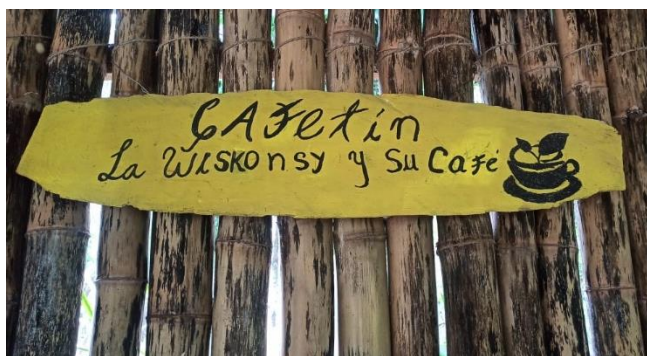 CAFetín
La WISKOnsy y Su Café